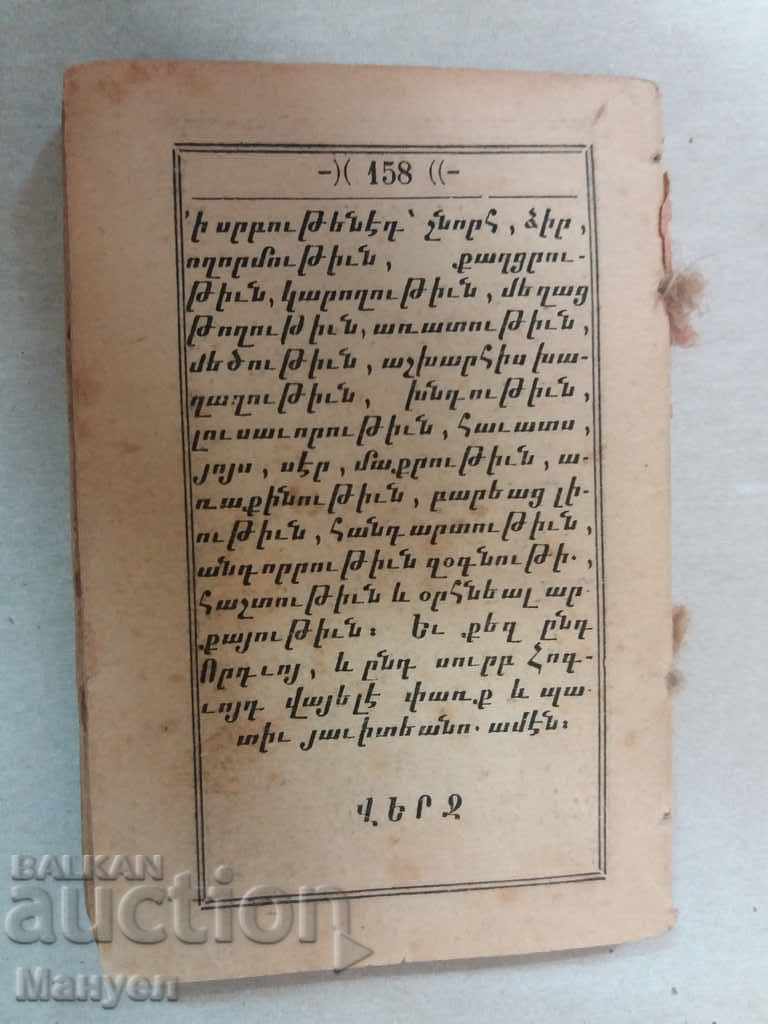 -)( 158 ((-
՚ի սրբութենէդ՝ շնորհ, ձիր,
ողորմութիւն, քաղցրու-
թիւն, կարողութիւն, մեղաց
թողութիւն, առատութիւն,
մեծութիւն, աշխարհիս խա-
ղաղութիւն, խնդութիւն,
լուսաւորութիւն, հաւատս,
յոյս, սէր, մաքրութիւն, ա-
ռաքինութիւն, բարեաց լի-
ութիւն, հանդարտութիւն,
անդորրութիւն զօգնութի.,
հաշտութիւն և օրհնեալ ար-
քայութիւն։ Եւ քեզ ընդ
Որդւոյ, և ընդ սուրբ Հոգ-
ւոյդ վայելէ փառք և պա-
տիւ յաւիտեանս. ամէն։
ՎԵՐՋ
BALKAN
auction
Мануел